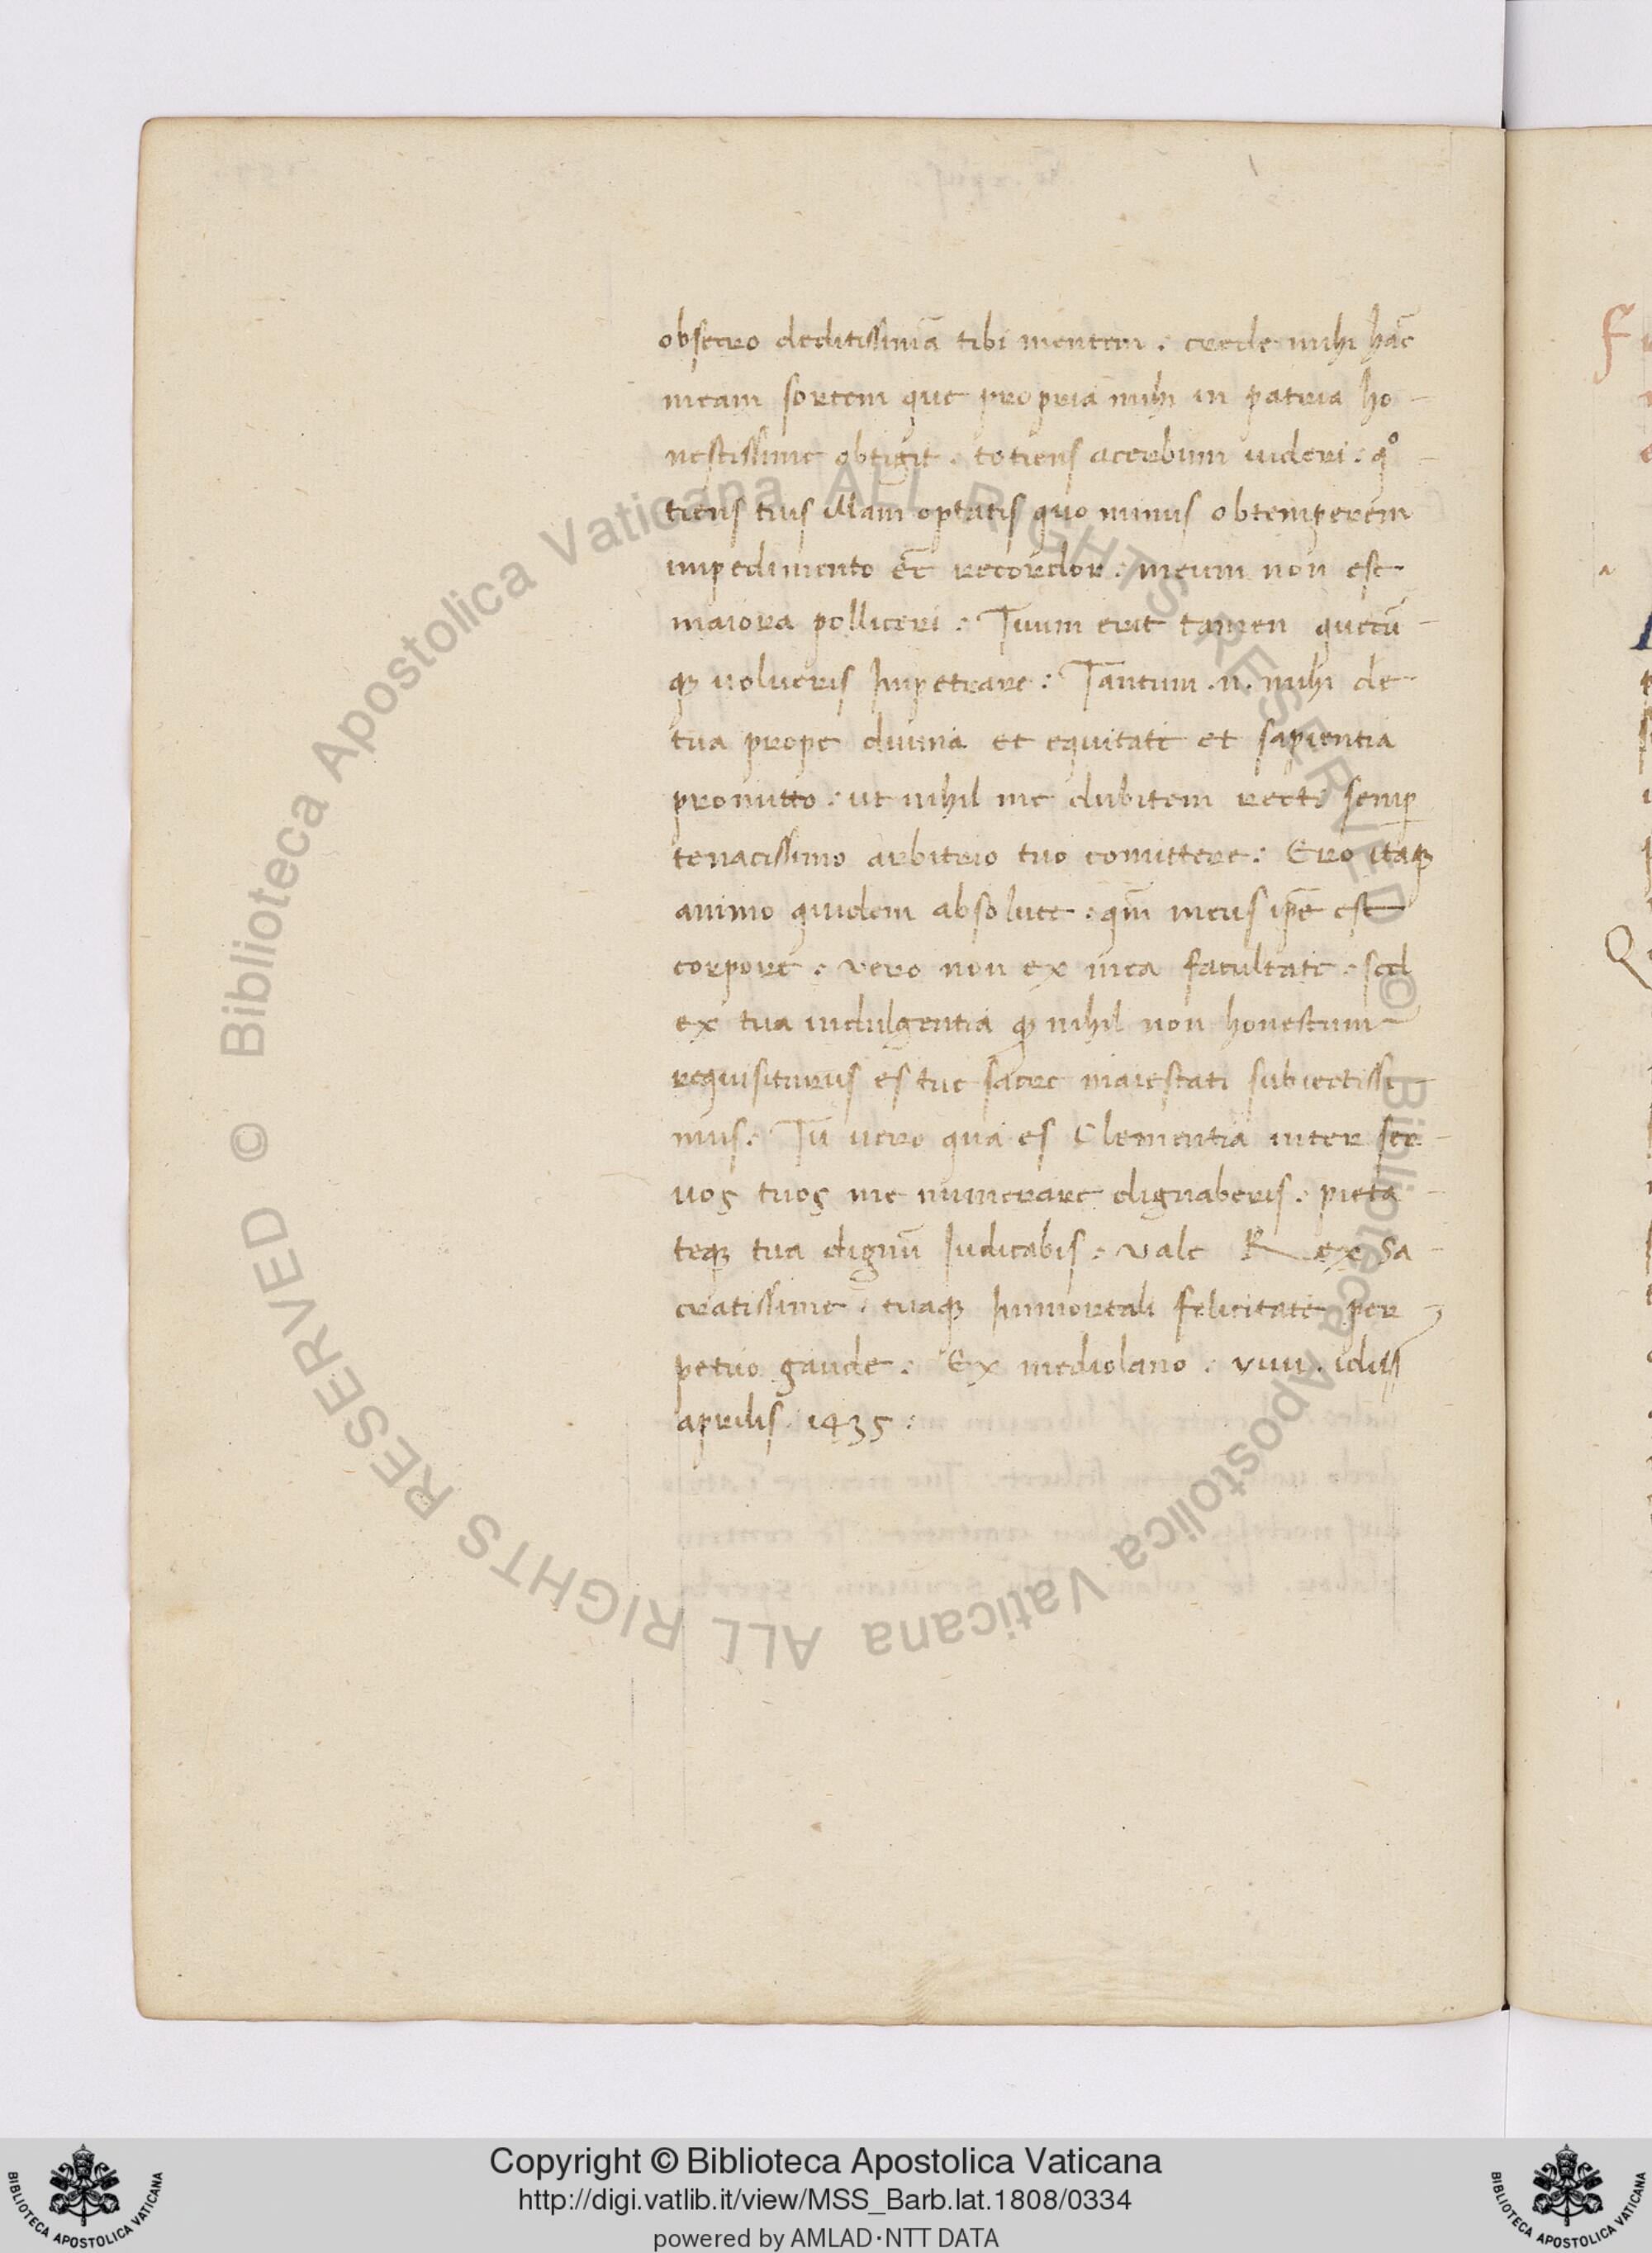 obsecro deditissimā tibi mentem . crede mihi hāc
meam sortem que propria mihi in patria ho-
nestissime obtigit . totiens acerbum uideri . qͦ-
tiens tuis illam optatis quo minus obtemperem
impedimento eē recordor : meum non est
maiora polliceri : Tuum erit tamen quecū-
qꝫ uolueris Impetrare : Tantum .n. mihi de
tua prope diuina et equitate et sapientia
promitto . ut nihil me dubitem recti semꝑ
tenacissimo arbitrio tuo comittere : Ero itaqꝫ
animo quidem absolute . qm̄ meus ip̄e est
corpore . vero non ex mea facultate . sed
ex tua indulgentia qꝫ nihil non honestum
requisiturus es tue sacre maiestati subiectissi-
mus : Tu uero qua es Clementia inter ser-
uos tuos me numerare dignaberis . pieta-
teqꝫ tua dignū Iudicabis . vale Rex Sa-
cratissime . tuaqꝫ Immortali felicitate per-
petuo gaude . Ex mediolano . viiii . idus
aprilis . 1435 :
© Biblioteca Apostolica Vaticana ALL RIGHTS RESERVED © Biblioteca Apostolica Vaticana ALL RIGHTS RESERVED
Copyright © Biblioteca Apostolica Vaticana
http://digi.vatlib.it/view/MSS_Barb.lat.1808/0334
powered by AMLAD·NTT DATA
BIBLIOTECA APOSTOLICA VATICANA
BIBLIOTECA APOSTOLICA VATICANA